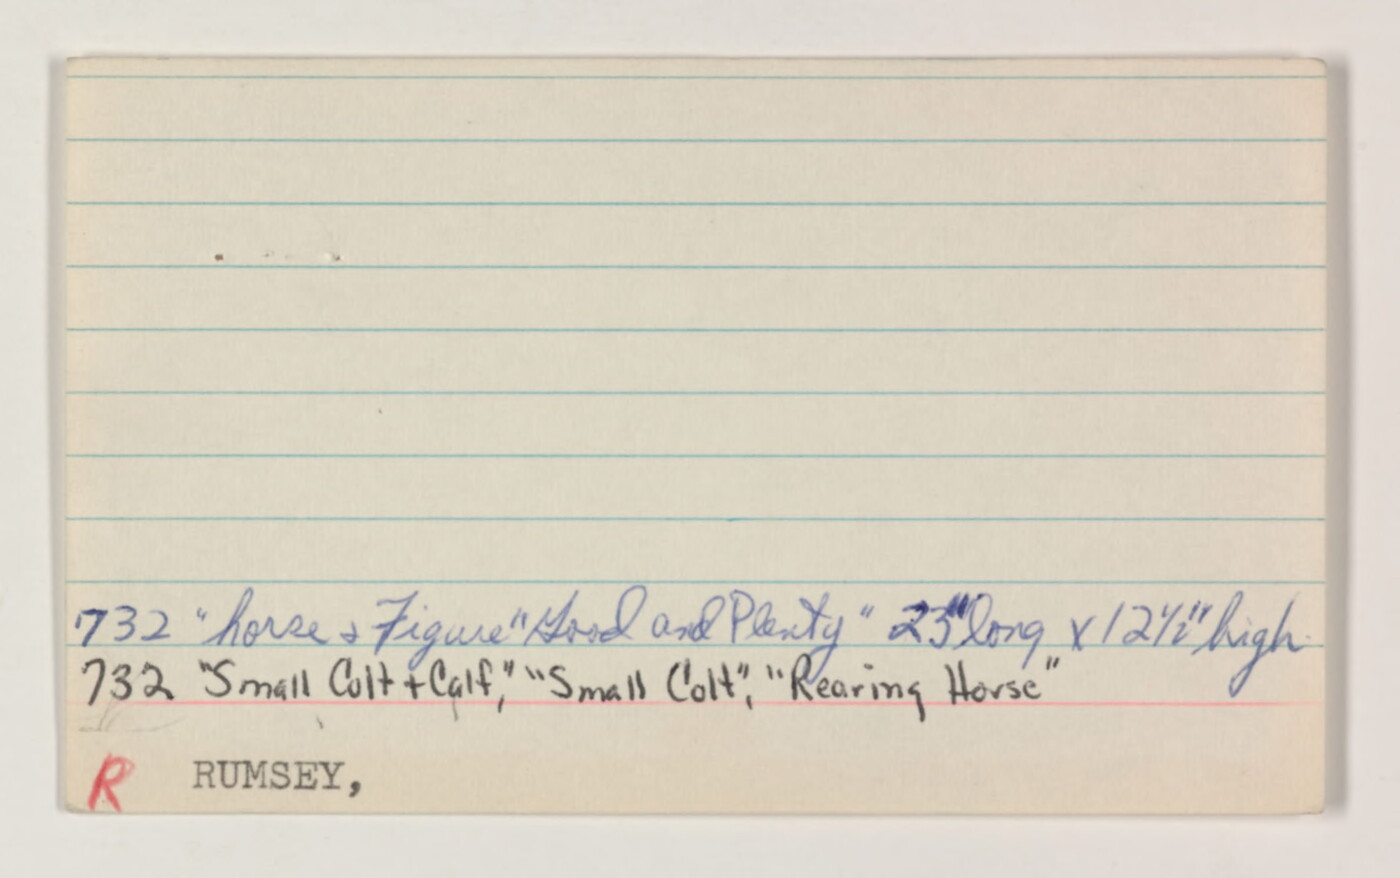 732 "horse & Figure" "Good and Plenty" 23" long x 12½" high.
732 "Small Colt + Calf," "Small Colt", "Rearing Horse"
R RUMSEY,